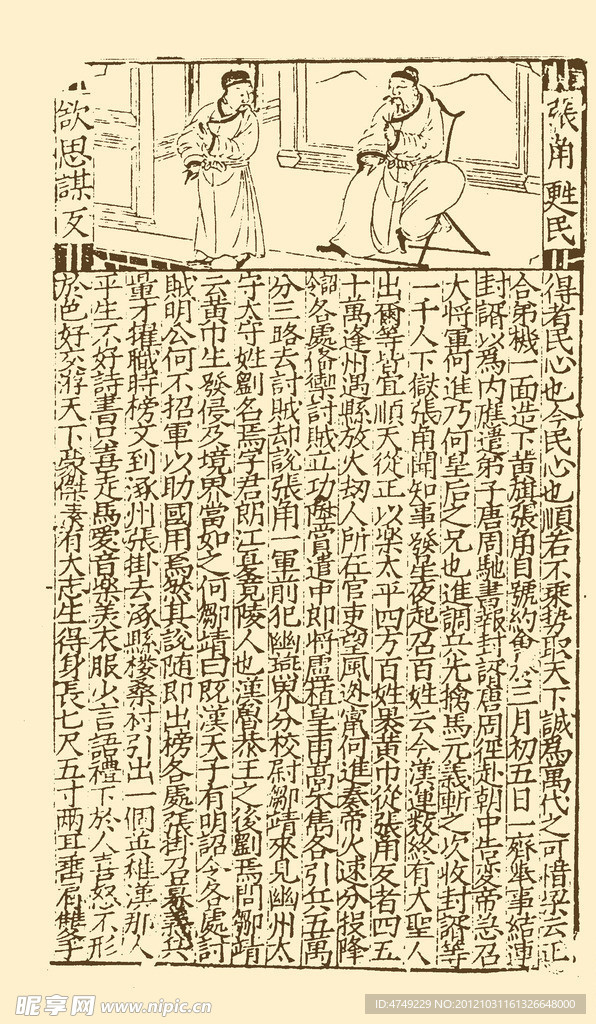 張角甦民
欲思謀反
得者民心也今民心也順若不乘勢取天下誠為萬代之可惜弘云正
合弟機一面造下黄旗張角自號約會於三月初五日一齊舉事結連
封諝以為内應遣弟子唐周馳書報封諝唐周径赴朝中告変帝急召
大将軍何進乃何皇后之兄也進調兵先擒馬元義斬之次收封諝等
一千人下獄張角聞知事發星夜起召百姓云今漢運数終有大聖人
出爾等皆宜順天從正以樂太平四方百姓裹黄巾從張角反者四五
十萬逢州遇縣放火刼人所在官吏望風逃竄何進奏帝火速分投降
詔各處俻禦討賊立功陞賞遣中郎将盧植皇甫嵩朱儁各引兵五萬
分三路去討賊却説張角一軍前犯幽燕界分校尉鄒靖來見幽州太
守太守姓劉名焉字君朗江夏竟陵人也漢魯恭王之後劉焉問鄒靖
云黄巾生發侵及境界當如之何鄒靖曰既漢天子有明詔令各處討
賊明公何不招軍以助國用焉然其説随即出榜各處張掛召募義兵
量才擢職時榜文到涿州張掛去涿縣楼桑村引出一個英雄漢那人
平生不好詩書只喜走馬愛音樂美衣服少言語禮下於人喜怒不形
於色好交游天下豪傑素有大志生得身長七尺五寸兩耳垂肩雙手
昵享网 www.nipic.cn
ID:4749229 NO:20121031161326648000